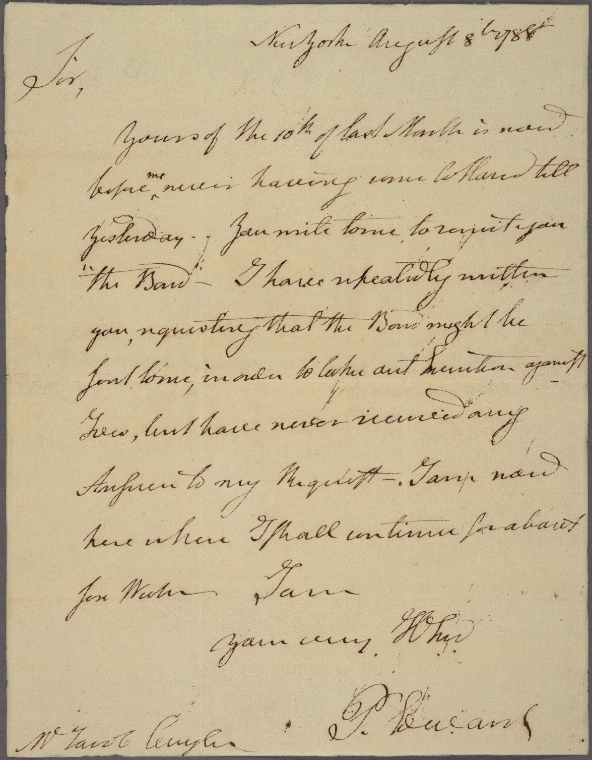 New York August 8th 1788
Sir,
Yours of the 10th of last Month is now
before me, never having come to Hand till
Yesterday. You write to me to remit you
"the Bond" - I have repeatedly written
you, requesting that the Bond might be
sent to me, in order to take out Execution against
Ives, but have never received any
Answer to my Request -. I am now
here where I shall continue for about
six Weeks I am
Your very Hble
P. Edwards
Mr. Jacob Cuyler